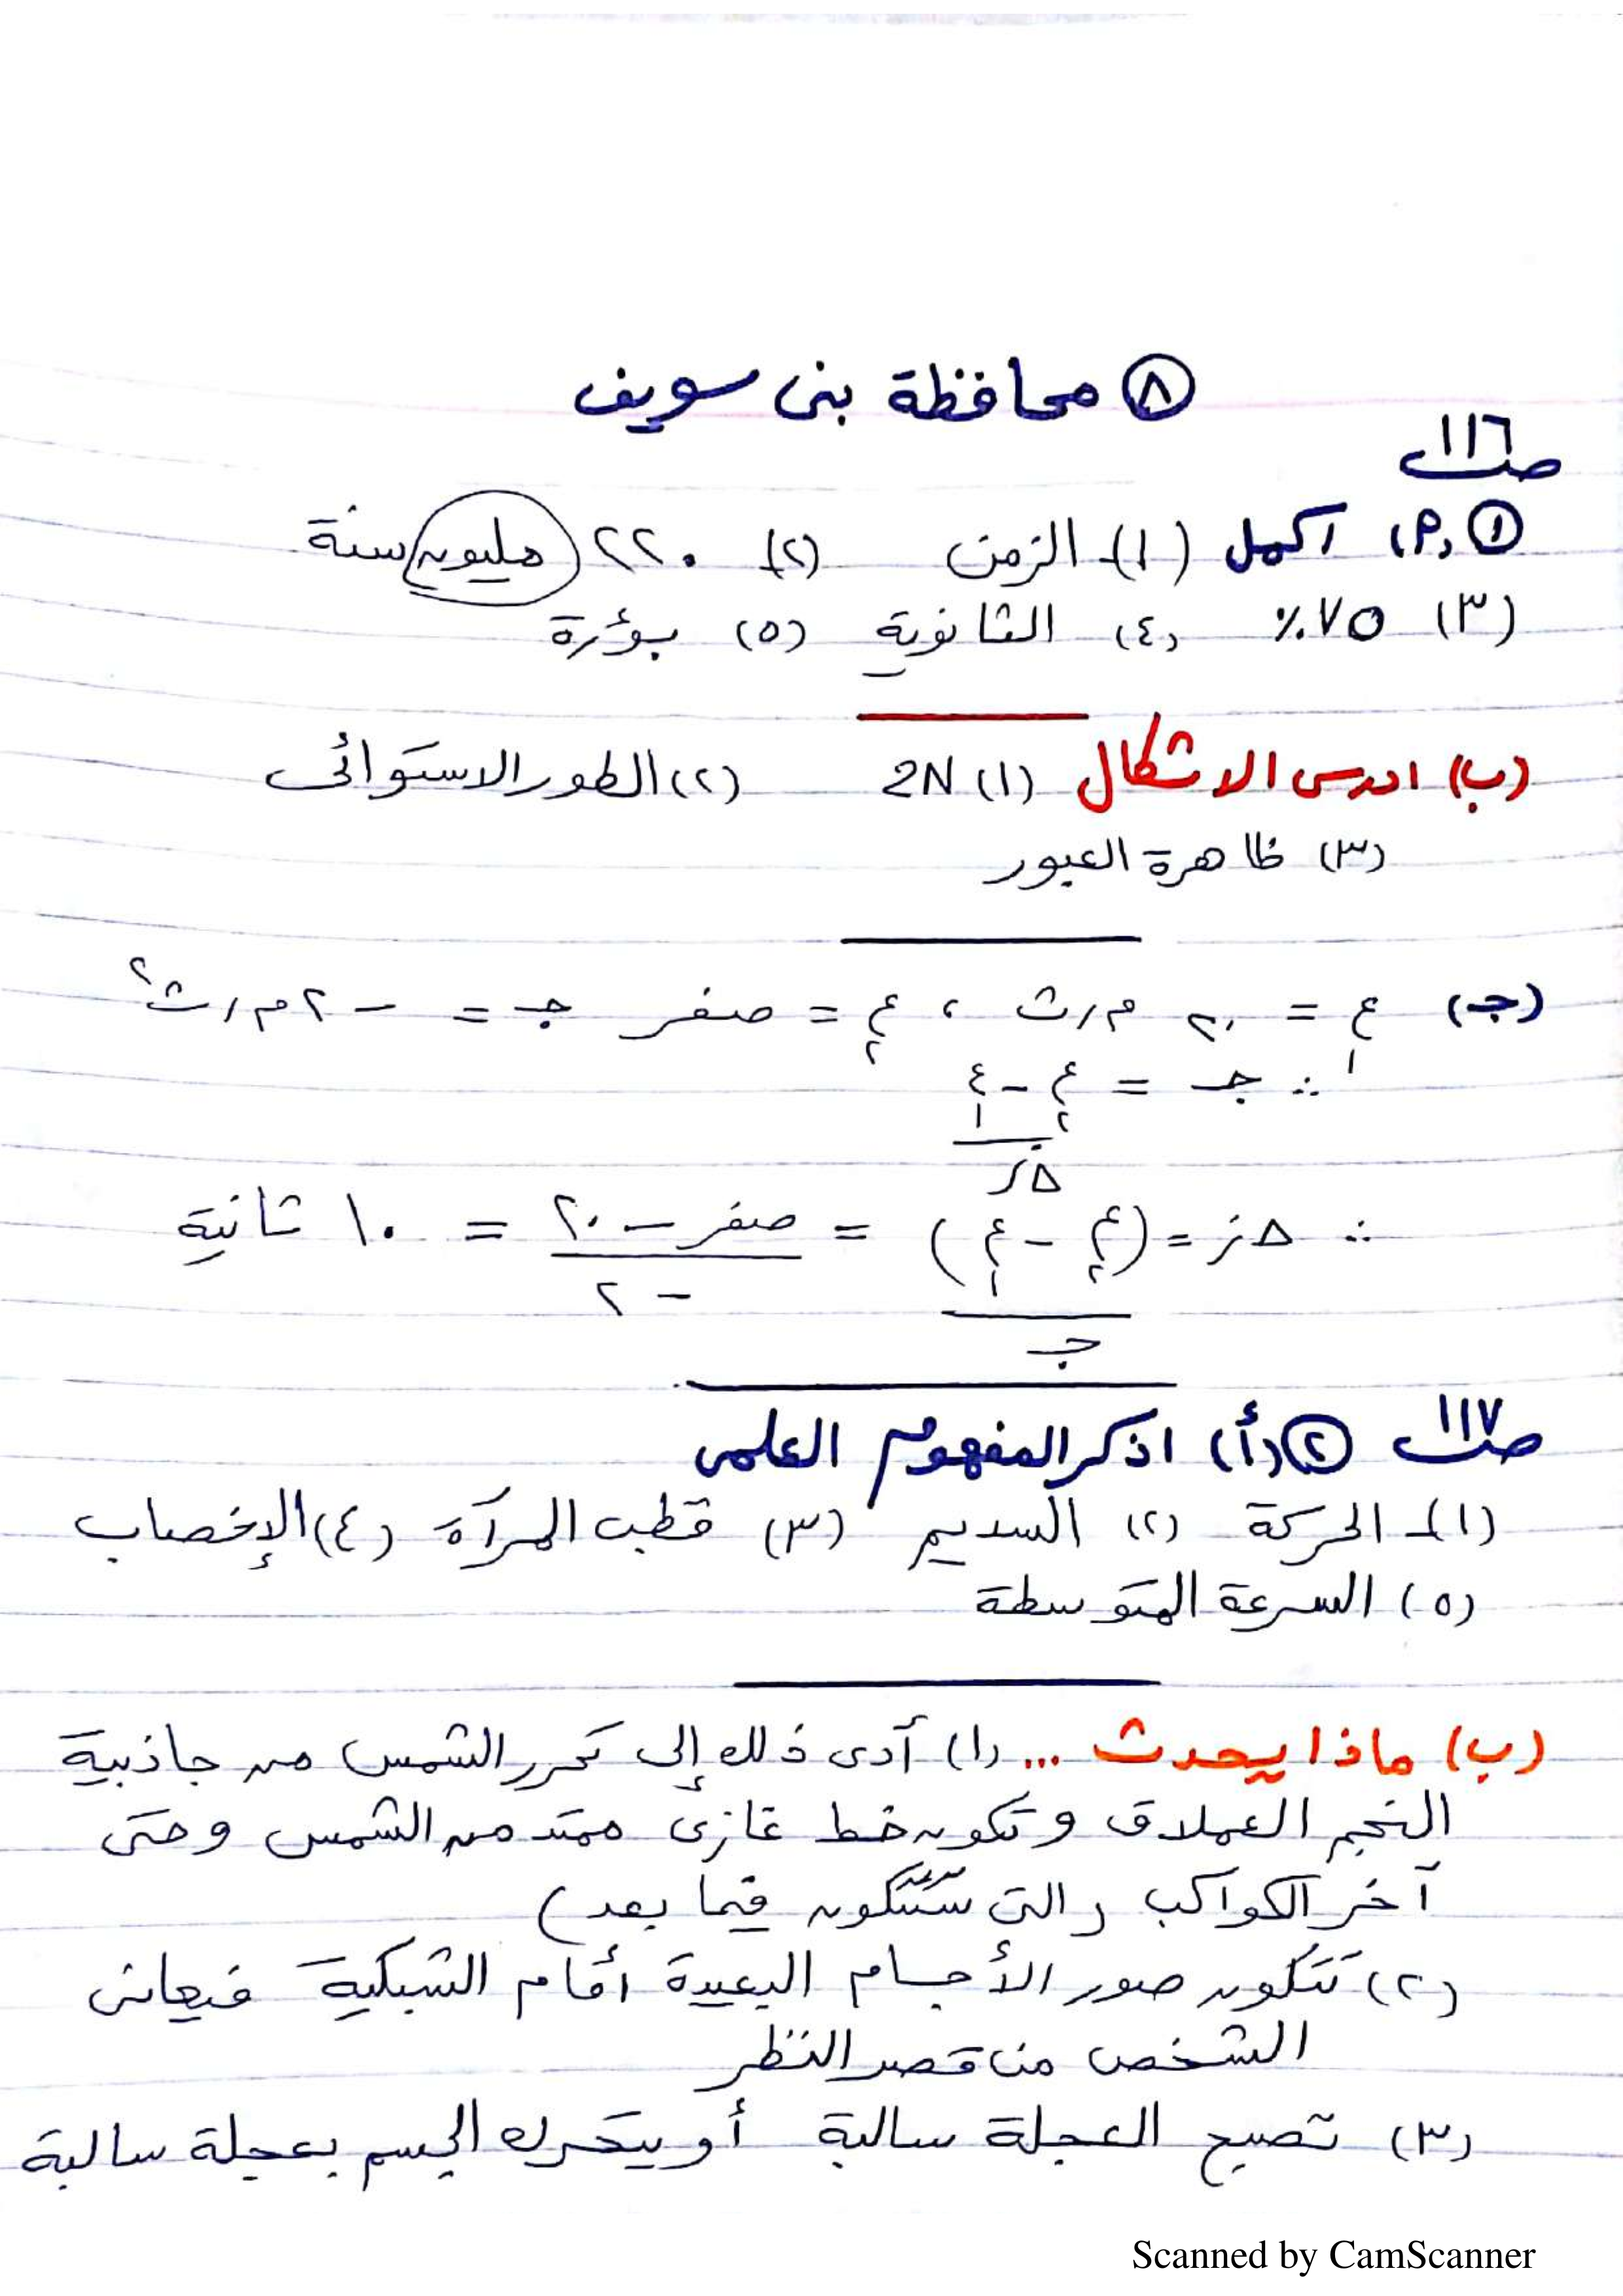 ⑧ محافظة بنى سويف
صـ ١١٦
① (P) اكمل (١) الزمن (٢) ٢٢٠ مليون سنة
(٣) ٧٥٪ (٤) الثانوية (٥) بؤرة
(ب) ادرس الاشكال (١) 2N (٢) الطور الاستوائى
(٣) ظاهرة العبور
(جـ) ع١ = ٢٠ م/ث ، ع٢ = صفر جـ = - ٢ م/ث٢
∴ جـ = ع٢ - ع١
Δز
∴ Δز = (ع٢ - ع١) = صفر - ٢٠ = ١٠ ثانية
جـ - ٢
صـ ١١٧ ② (أ) اذكر المفهوم العلمى
(١) الحركة (٢) السديم (٣) قطب المرآة (٤) الإخصاب
(٥) السرعة المتوسطة
(ب) ماذا يحدث ... (١) أدى ذلك إلى تحرر الشمس من جاذبية
النجم العملاق وتكون خط غازى ممتد من الشمس وحتى
آخر الكواكب (التى ستتكون فيما بعد)
(٢) تتكون صور الأجسام البعيدة أمام الشبكية فيعانى
الشخص من قصر النظر
(٣) تصبح العجلة سالبة أو يتحرك الجسم بعجلة سالبة
Scanned by CamScanner